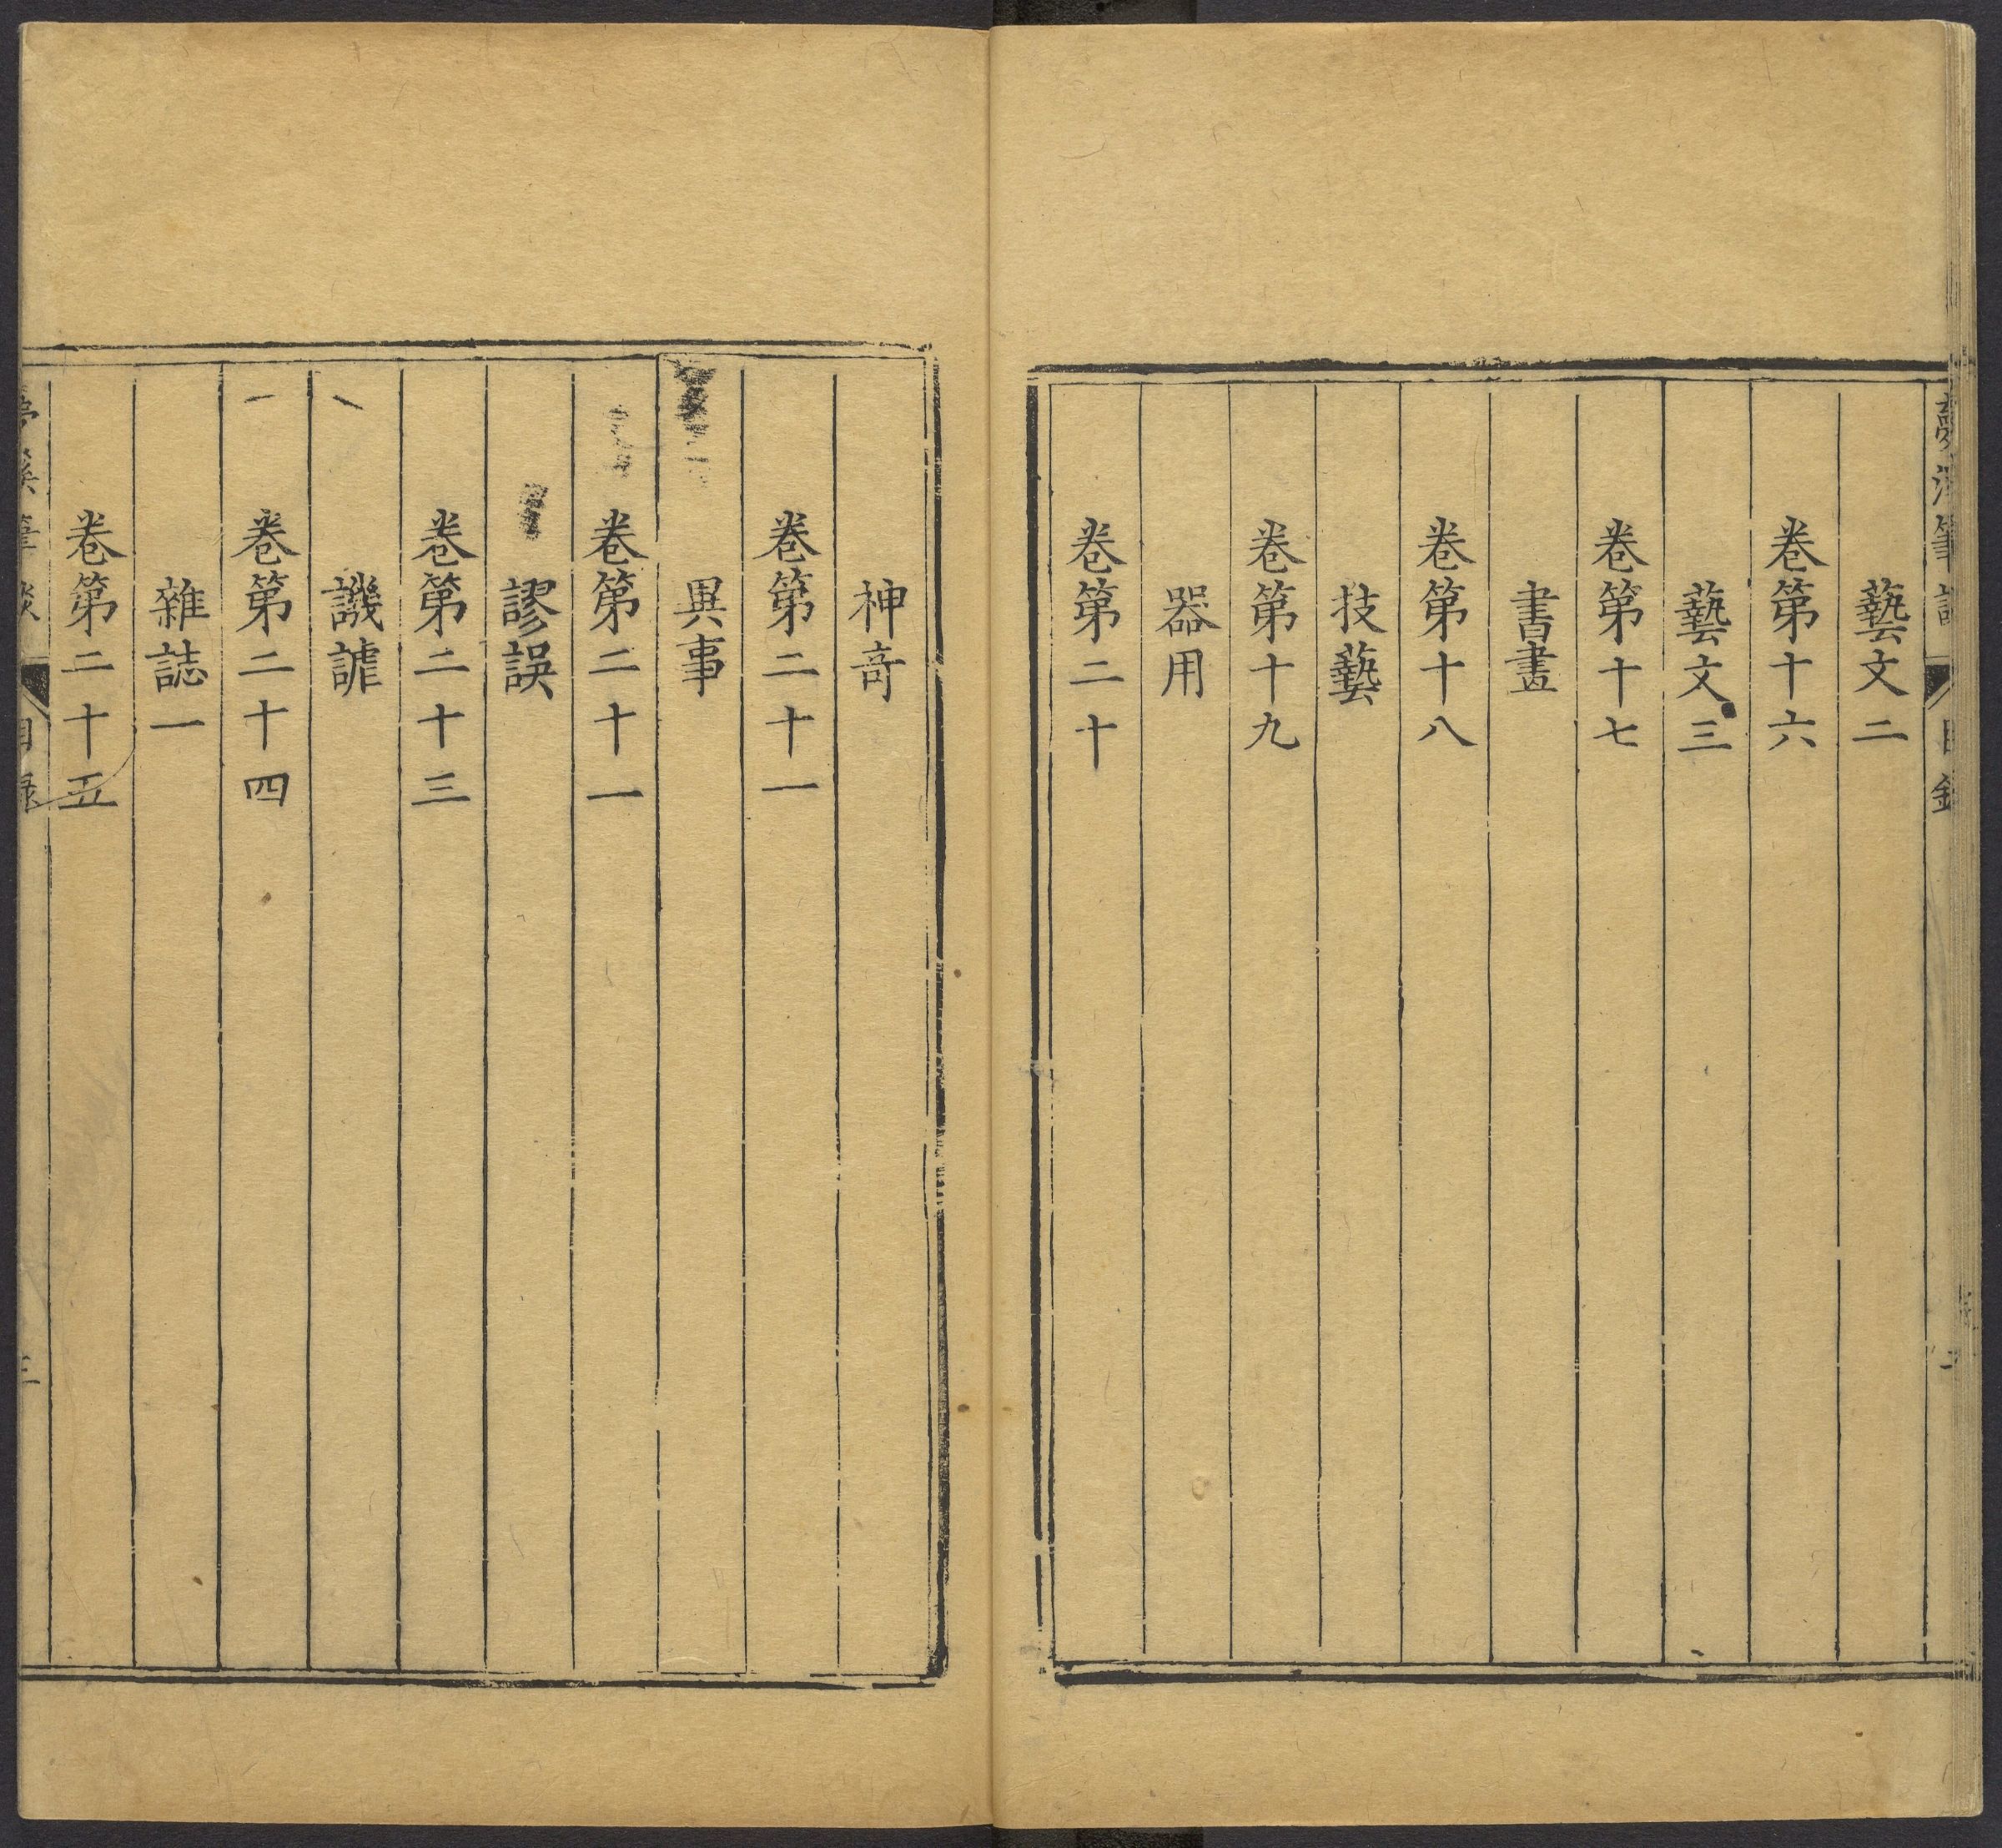 藝文二
卷第十六
藝文三
卷第十七
書畫
卷第十八
技藝
卷第十九
器用
卷第二十
神竒
卷第二十一
異事
卷第二十一
謬誤
卷第二十三
譏謔
卷第二十四
雜誌一
卷第二十五
筆談
目錄
三